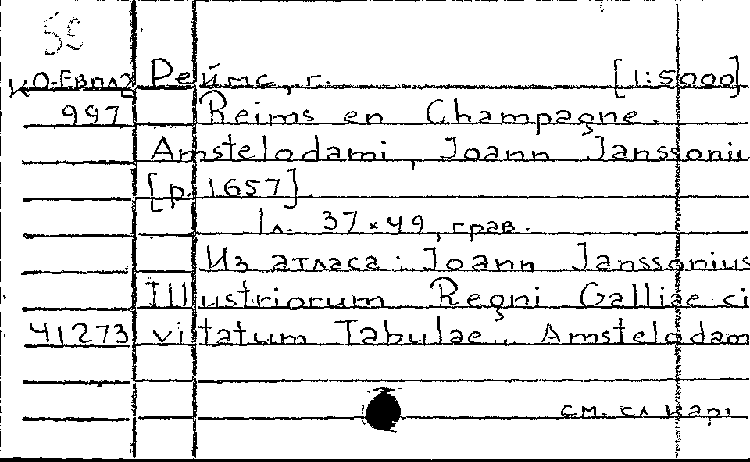 59
КО-Евпл2 Реймс, г. [1:5000]
997 Reims en Champagne.
Amstelodami, Joann Janssoniu
[p. 1657]
1 л. 37×49, грав.
Из атласа: Joann Janssonius
Illustriorum Regni Galliae ci
41273 vitatum Tabulae, Amstelodam
см. сл карт